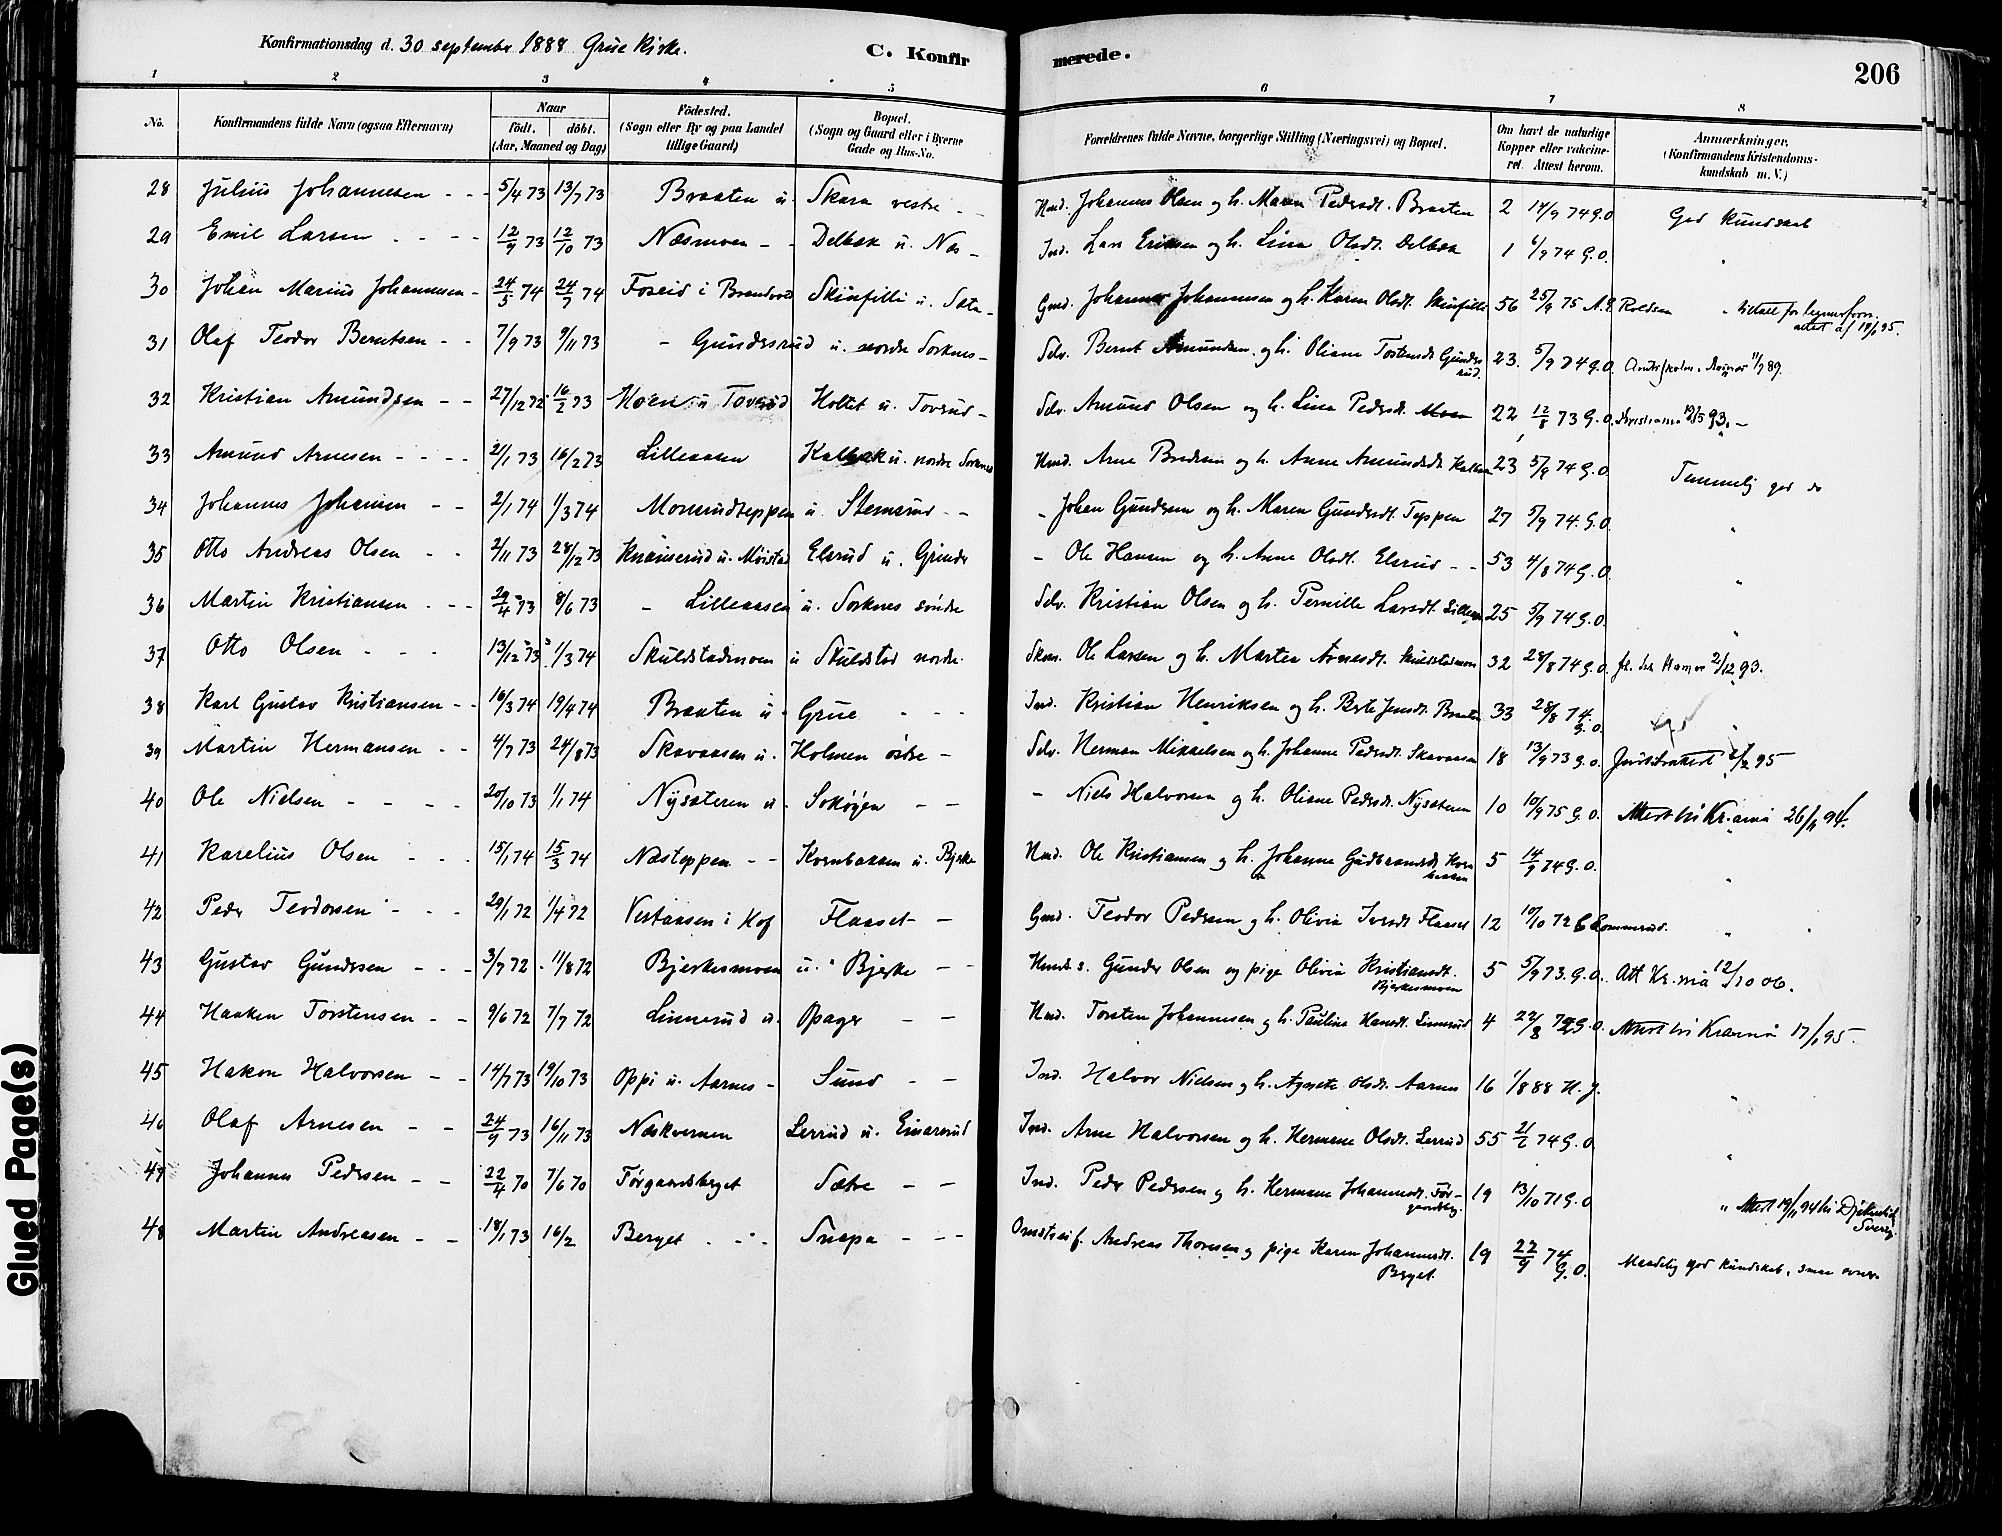 Konfirmationsdag d. 30 september 1888 Grue Kirke. C. Konfirmerede. 206
1 2 3 4 5 6 7 8
No. Konfirmandens fulde Navn (ogsaa Efternavn) Naar født. døbt. (Aar, Maaned og Dag) Fødested. (Sogn eller By og paa Landet tillige Gaard) Bopæl. (Sogn og Gaard eller i Byerne Gade og Hus-No. Forældrenes fulde Navne, borgerlige Stilling (Næringsvei) og Bopæl. Om havt de naturlige Kopper eller vakcineret. Attest herom. Anmærkninger. (Konfirmandens Kristendomskundskab m. V.)
28 Julius Johannesen - - - 5/4 73 13/7 73 Braaten u. Skara vestre - - Hmd. Johannes Olsen og h. Maren Pedersdt. Braaten 2 14/9 74 G.O God kundskab
29 Emil Larsen - - - - 12/9 73 12/10 73 Næsmoen - - Delbæk u. Næs - Ind. Lars Eriksen og h. Lina Olsdt. Delbæk 1 6/9 74 G.O. "
30 Johan Marius Johannesen - 24/5 74 24/7 74 Foseid i Brandval Skinfilli u. Gmd. Johannes Johannesen og h. Karen Olsdt. Skinfilli 56 25/9 75 "
31 Olaf Teodor Berntsen - - 7/9 73 9/11 73 - Gundersrud u. nordre Sorknes - Selv. Bernt Amundsen og h. Oliane Torstensdt. Gundersrud. 23. 5/9 74 G.O. 11/7 89.
32 Kristian Amundsen - - 27/12 72 16/2 73 Moen u Tovsrud Holtet u. Tovsrud - Selv. Amund Olsen og h. Lina Pedersdt. Moen 22 12/8 73 G.O. Kristiania 93. -
33 Amund Arnesen - - - - 21/1 73 16/2 73 Lilleaasen Kalbæk u. nordre Sorknes Hmd. Arne Bredesen og h. Anne Amundsdt. 23 5/9 74 G.O. Temmelig god do
34 Johannes Johansen - - 2/1 74 1/3 74 Monsrudteppen u. Stemsrud - - - Johan Gundersen og h. Maren Gundersdt. Teppen 27 5/9 74. G.O. "
35 Otto Andreas Olsen - - 2/11 73 28/12 73 Knauserud u. Møistad Elsrud u. Grinder - Ole Hansen og h. Anne Olsdt. Elsrud - - 53 4/8 74 G.O. "
36 Martin Kristiansen - - - 29/4 73 8/6 73 - Lilleaasen u. Sorknes søndre Selv. Kristian Olsen og h. Pernille Larsdt. 25 5/9 74 G.O. "
37 Otto Olsen - - - 13/12 73 1/3 74 Skuldstadmoen u Skulstad nordre. Ole Larsen og h. Martea Arnesdt. Skulstadmoen 32 28/8 74 G.O. Hamar 2/12 93.
38 Karl Gustav Kristiansen - - 16/3 74 19/4 74 Braaten u. Grue - - - Ind. Kristian Henriksen og h. Berte Jensdt. Braaten 33 28/8 74. G.O. "
39 Martin Hermansen - - 4/7 73 24/8 73 Skavaasen u. Holmen østre - Selv. Herman Mikkelsen og h. Johanne Pedersdt. Skavaasen 18 13/9 73 G.O. 95
40 Ole Nielsen - - - - 20/10 73 1/1 74 Nysæteren u. Sokøyen - - - Niels Halvorsen og h. Oliane Pedersdt. Nysæteren 10 10/9 75 G.O. Attest til Kr.ania 26/1 94.
41 Karelius Olsen - - - 15/1 74 15/3 74 Næsteppen - - Kornbakken u. Bjerke Hmd. Ole Kristiansen og h. Johanne Gudbrandsdt. Kornbakken 5 14/9 74 G.O. "
42 Peder Teodorsen - - - 29/1 72 1/4 72 Vestaasen i Hof Flaaset - Gmd. Teodor Pedersen og h. Olivia Iversdt. Flaaset 12 19/10 72 " "
43 Gustav Gundersen - - - 3/7 72 - 11/8 72 Bjerkesmoen u. Bjerke - - Gunder Olsen og pige Olivia Kristiansdt. Bjerkesmoen 5 5/9 73. G.O. Att Kr.nia 12/10 06.
44 Haaken Torstensen - - 9/6 72 7/7 72 Linnerud u. Opager - - Hmd. Torsten Johannesen og h. Pauline Hansdt. Linnerud 4 22/8 72 G.O. Attest til Krania 17/1 95.
45 Hakon Halvorsen - - 14/7 73 19/10 73 Oppi u. Aarnes - Sund - - Ind. Halvor Nielsen og h. Agnete Olsdt. Aarnes 16 1/8 88 H.J. "
46 Olaf Arnesen - - 24/9 73 16/11 73 Næskvernen Lerrud u. Einarsrud Ind. Arne Halvorsen og h. Hermene Olsdt. Lerrud 55 21/2 74 G.O. "
47 Johannes Pedersen - - 22/4 70 7/6 70 Førgaardsberget Sætre - - Ind. Peder Pedersen og h. Hermene Johannesdt. Førgaardsbg. 19 13/10 71 G.O " Attest 19/11 94 til Sverig.
48 Martin Andreasen - - 18/1 73 16/2 Berget - - - Snepa - - - Andreas Thoresen og pige Karen Johannesdt. Berget. 19 22/9 74 G.O. Maadelig god kundskab, smaa evner
Glued Page(s)